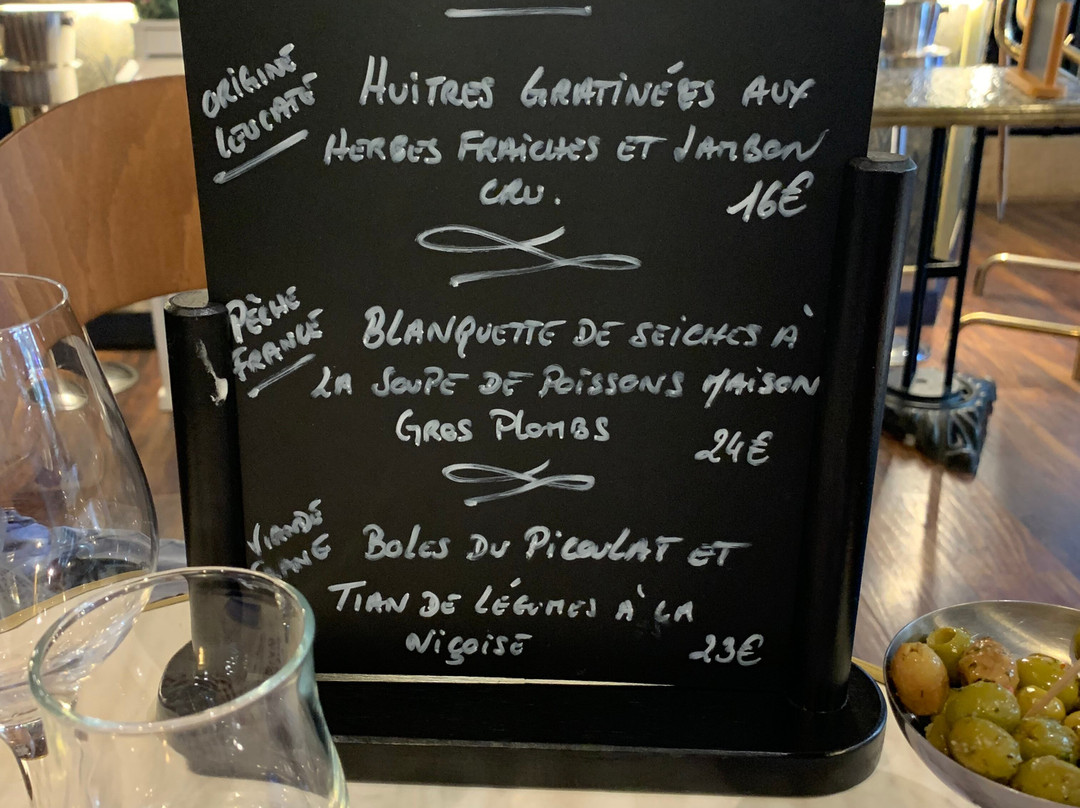 ORIGINE
LEUCATE
HUITRES GRATINÉES AUX
HERBES FRAICHES ET JAMBON
CRU.
16€
PÈCHE
FRANCE
BLANQUETTE DE SEICHES À
LA SOUPE DE POISSONS MAISON
GROS PLOMBS
24€
VIANDE
BOLES DU PICOULAT ET
TIAN DE LÉGUMES À LA
NIÇOISE
23€